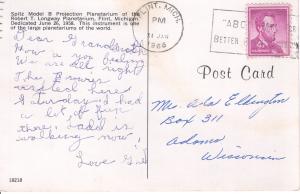 Spitz Model B Projection Planetarium of the
Robert T. Longway Planetarium, Flint, Michigan.
Dedicated June 26, 1958. This instrument is one
of the large planetariums of the world.
Dear Grandmother
How are you feeling
We are all right
The Bowers
visited here
Saturday. I had
a lot of fun
there, Dad is
working now
Love Gail
10218
FLINT, MICH.
PM
14 JAN
1966
"ABC
BETTER
4¢
Post Card
Mrs. Ada Elkington
Box 311
Adams
Wisconsin